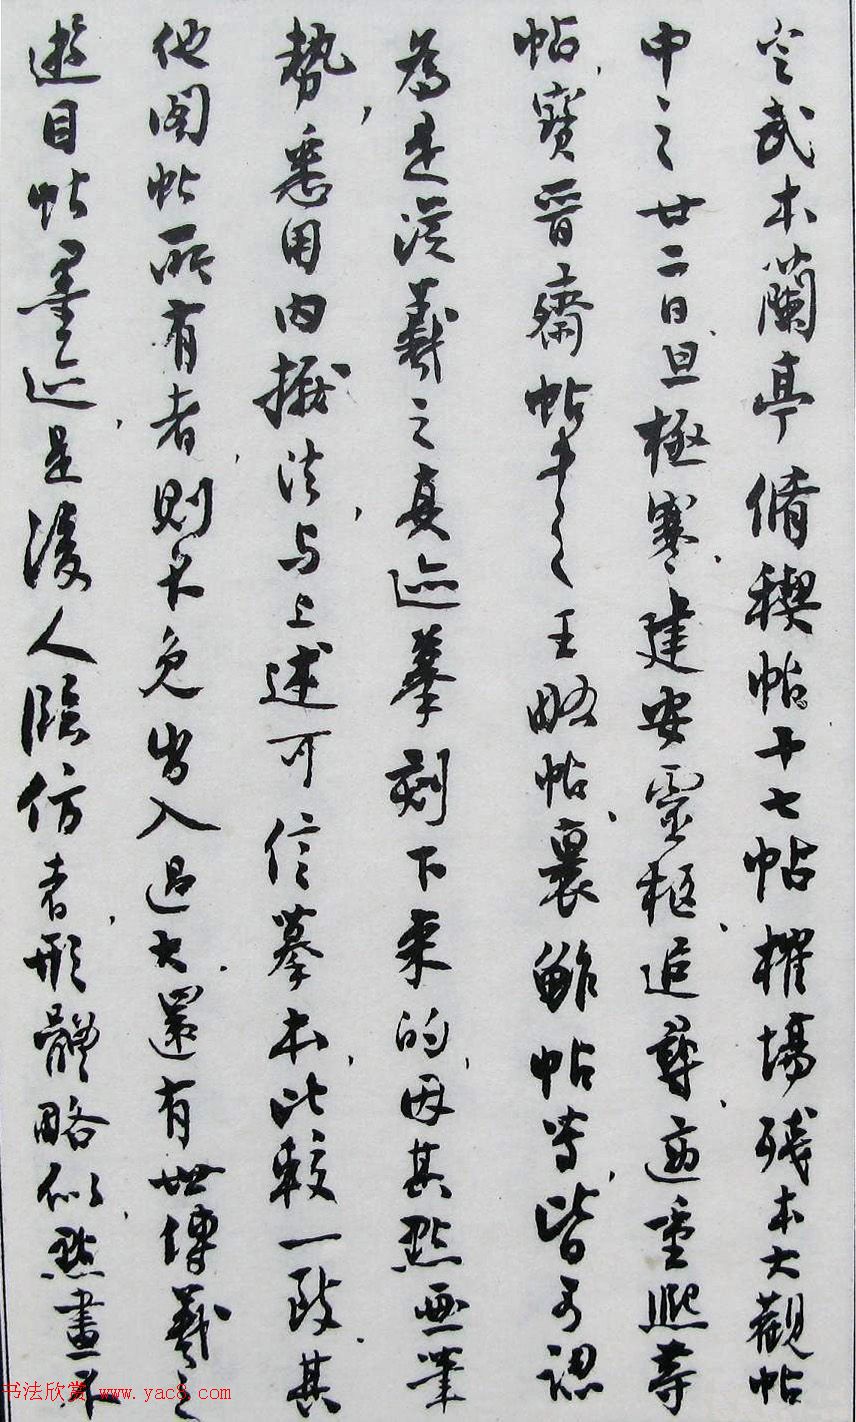 定武本蘭亭脩稧帖十七帖榷場殘本大觀帖
中之廿二日、旦極寒、建安靈柩、追尋、適重熙等
帖、寶晉齋帖中之王略帖、裹鮓帖等、皆可認
為是從羲之真迹摹刻下來的、因其點畫筆
勢、悉用內擫法、與上述可信摹本、比較一致、其
他閣帖所有者、則不免出入過大、還有世傳羲之
遊目帖墨迹、是後人臨仿者、形體略似、點畫不
书法欣赏 www.yac8.com